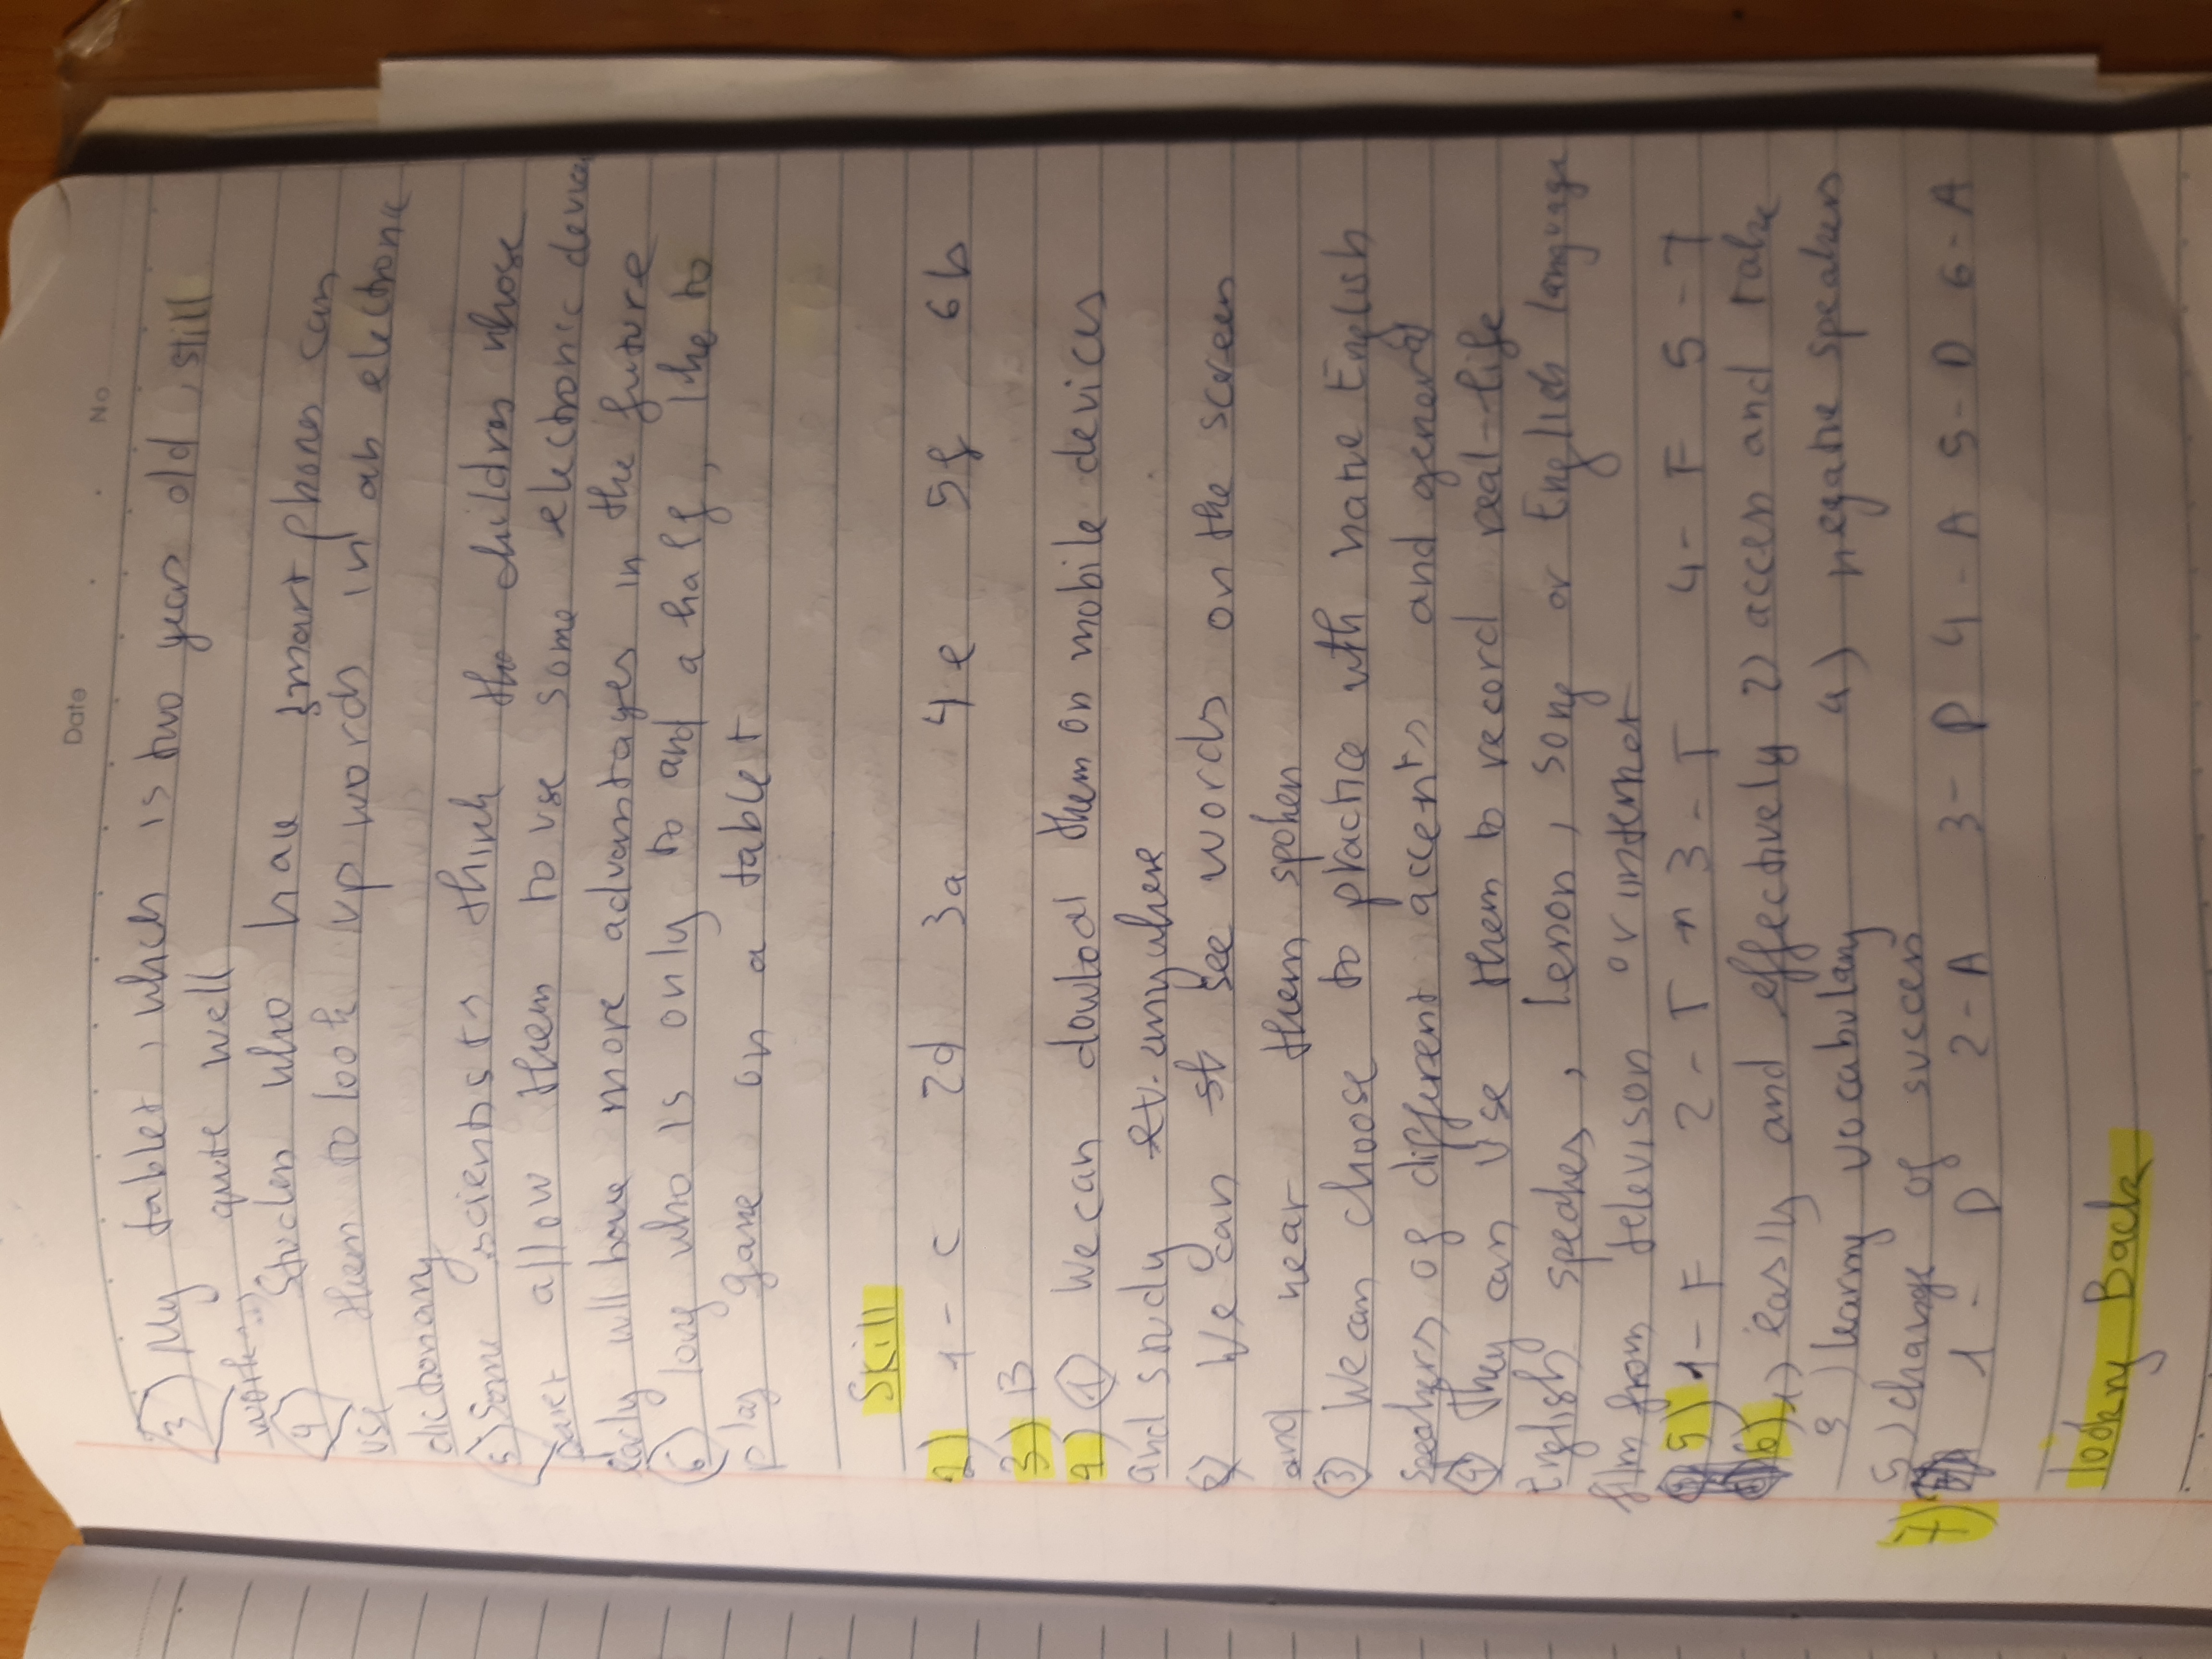 Date No
3) My tablet, which is two years old, still
works quite well
4) Studen who have smart phones can
use them to look up words in an electronic
dictionary
5) Some scientists think the children whose
paret allow them to use some electronic devices
early will have more advantages in the future
6) long who is only to and a half, like to
play game on a tablet
Skill
2) 1 - c 2d 3a 4e 5f 6b
3) B
4) 1 We can dowload them on mobile devices
and study anywhere
2 We can see words on the screen
and hear them spoken
3 We can choose to practice with native English
speakers of different accents and genera
4 They can use them to record real-life
English speakes, lesson, song or English language
film from televison or internet
5) 1 - F 2 - T 3 - T 4 - F 5 - T
6) 1) easily and effectively 2) access and take
3) learny vocabulary 4) negative speakers
5) change of success
7) 1 - D 2 - A 3 - D 4 - A 5 - D 6 - A
looking Back